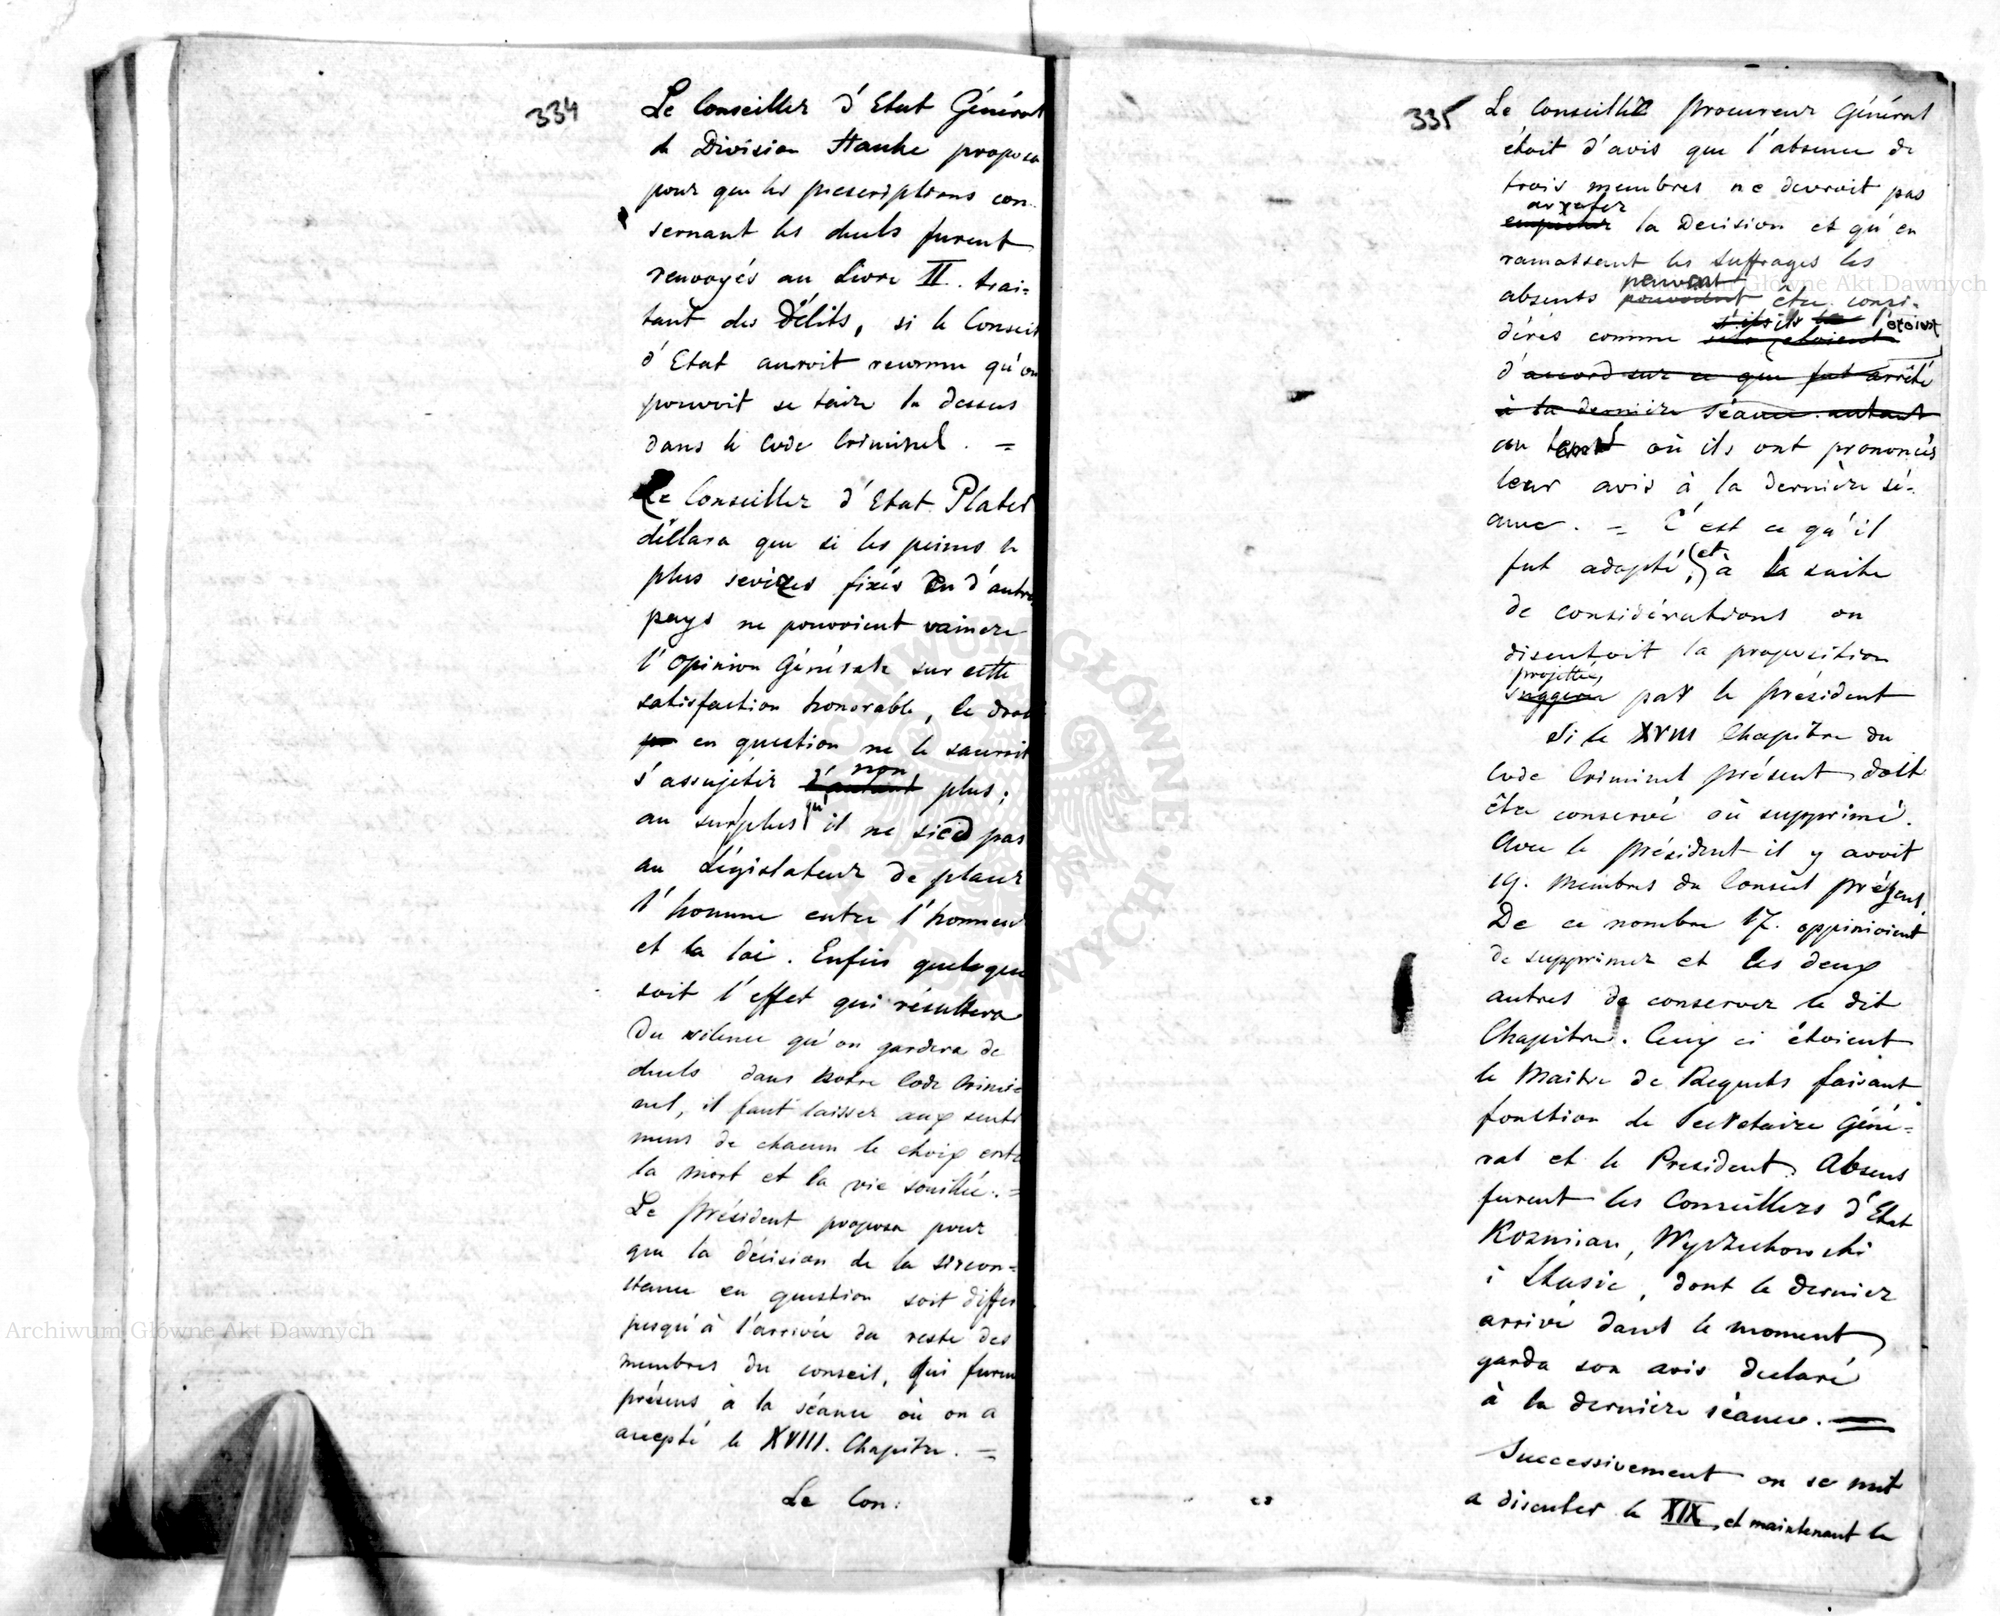 334
Le Conseiller d'Etat Général
de Division Hauke proposa
pour que les prescriptions con-
sernant les duels furent
renvoyés au Livre II. trai=
tant des Délits, si le Conseil
d'Etat auroit reconnu qu'on
pouvoit se taire la dessus
dans le Code Criminel. =
Le Conseiller d'Etat Plater
déclara que si les peines le
plus sevères fixés en d'autres
pays ne pouvoient vaincre
l'opinion Générale sur cette
satisfaction honorable, le droit
en question ne le sauroit
s'assujetir d'autant non plus;
au surplus qu'il ne sied pas
au Législateur de placer
l'homme entre l'honneur
et la loi. Enfin quelque
soit l'effet qui résultera
du silence qu'on gardera de
duels dans notre Code Crimi
nel, il faut laisser aux senti
mens de chacun le choix entre
la mort et la vie souillée. =
Le Président proposa pour
que la décision de la sircon=
stance en question soit differ
jusqu'à l'arrivée du reste des
membres du conseil, qui furent
présens à la séance où on a
accepté le XVIII. Chapitre. =
Le Con:
335
Le Conseiller Procureur Général
étoit d'avis que l'absence de
trois membres ne devroit pas
arreter
empecher la Decision et qu'en
ramassant les suffrages les
peuvent
absents pouvoient être consi-
dérés comme s'ils ils l'étoient
d'accord sur ce que fut arrêté
à la dernière séance autant
au tems où ils ont prononcés
leur avis à la dernière sé-
ance. = C'est ce qu'il
fut adopté, et à la suite
de considérations on
discutoit la proposition
projettée,
suggeré par le Président
Si le XVIII Chapitre du
Code Criminel présent doit
être conservé où supprimé.
Avec le Président il y avoit
19. Membres du Conseil présens.
De ce nombre 17. oppinioient
de supprimer et les deux
autres de conserver le dit
Chapitre. Ceux ci étoient
le Maitre de Requets faisant
fonction de Secretaire Géné=
ral et le President. Absens
furent les Conseillers d'Etat
Kozmian, Wyczechowski
i Staszic, dont le dernier
arrivé dans le moment
garda son avis declaré
à la dernière séance. =
Successivement on se mit
a discuter le XIX, et maintenant le